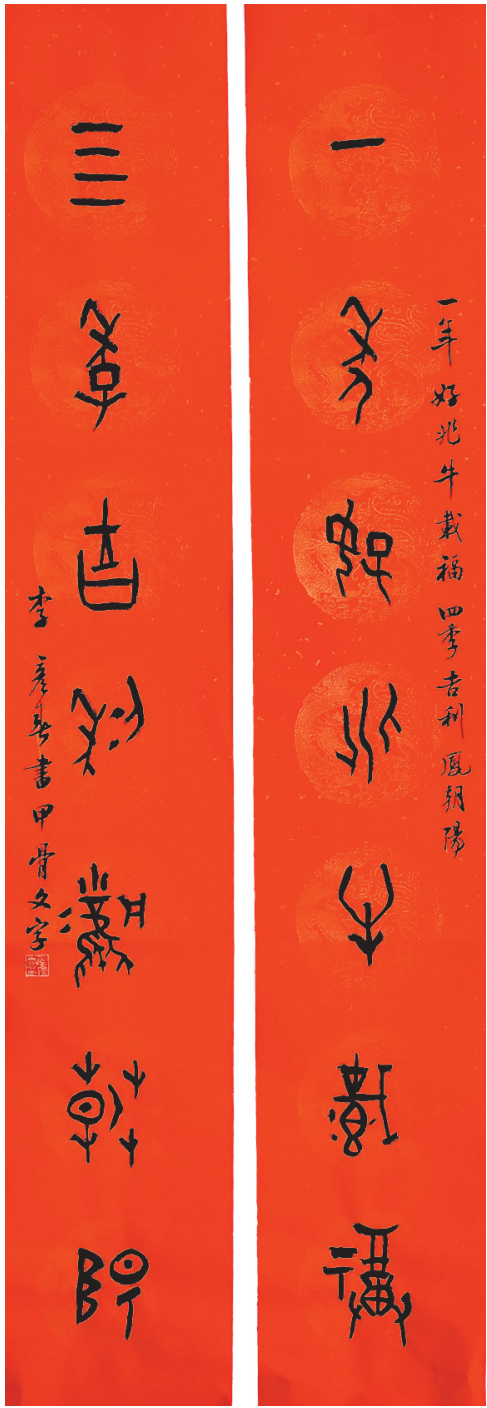 一年好兆牛載福
一年好兆牛載福 四季吉利鳳朝陽
四季吉利鳳朝陽
李彥春書甲骨文字